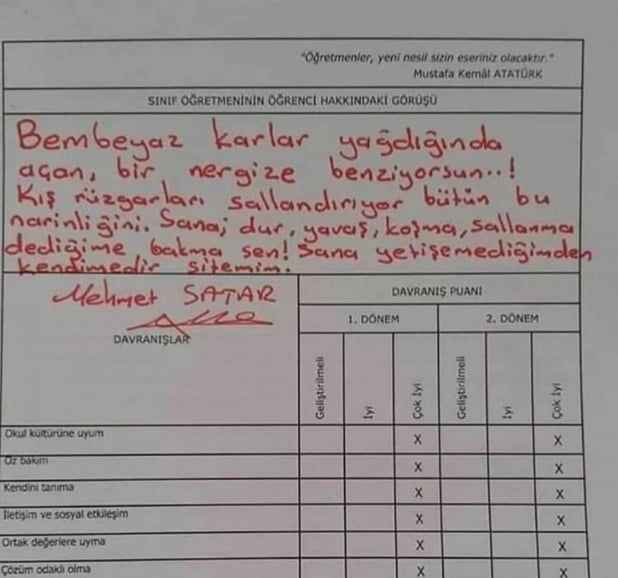 "Öğretmenler, yeni nesil sizin eseriniz olacaktır."
Mustafa Kemâl ATATÜRK
SINIF ÖĞRETMENİNİN ÖĞRENCİ HAKKINDAKİ GÖRÜŞÜ
Bembeyaz karlar yağdığında
açan, bir nergize benziyorsun..!
Kış rüzgarları sallandırıyor bütün bu
narinliğini. Sana; dur, yavaş, koşma, sallanma
dediğime bakma sen! Sana yetişemediğimden
kendimedir sitemim.
Mehmet SATAR
DAVRANIŞLAR
DAVRANIŞ PUANI
1. DÖNEM 2. DÖNEM
Geliştirilmeli İyi Çok İyi Geliştirilmeli İyi Çok İyi
Okul kültürüne uyum X X
Öz bakım X X
Kendini tanıma X X
İletişim ve sosyal etkileşim X X
Ortak değerlere uyma X X
Çözüm odaklı olma X X